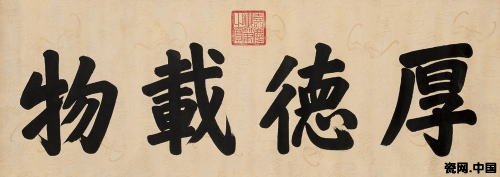 厚德載物
瓷网.中国